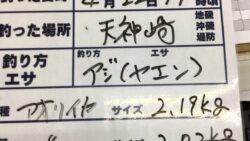 4月22日
頃
釣った場所 天神崎 地磯 沖磯 堤防
釣り方 エサ
釣り方 エサ アジ(ヤエン)
種 アオリイカ サイズ 2,19kg